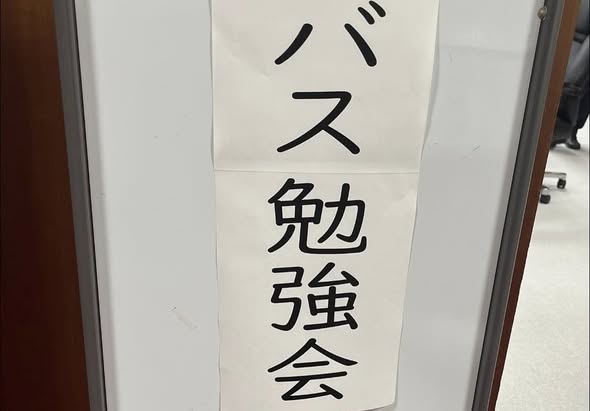 バス勉強会